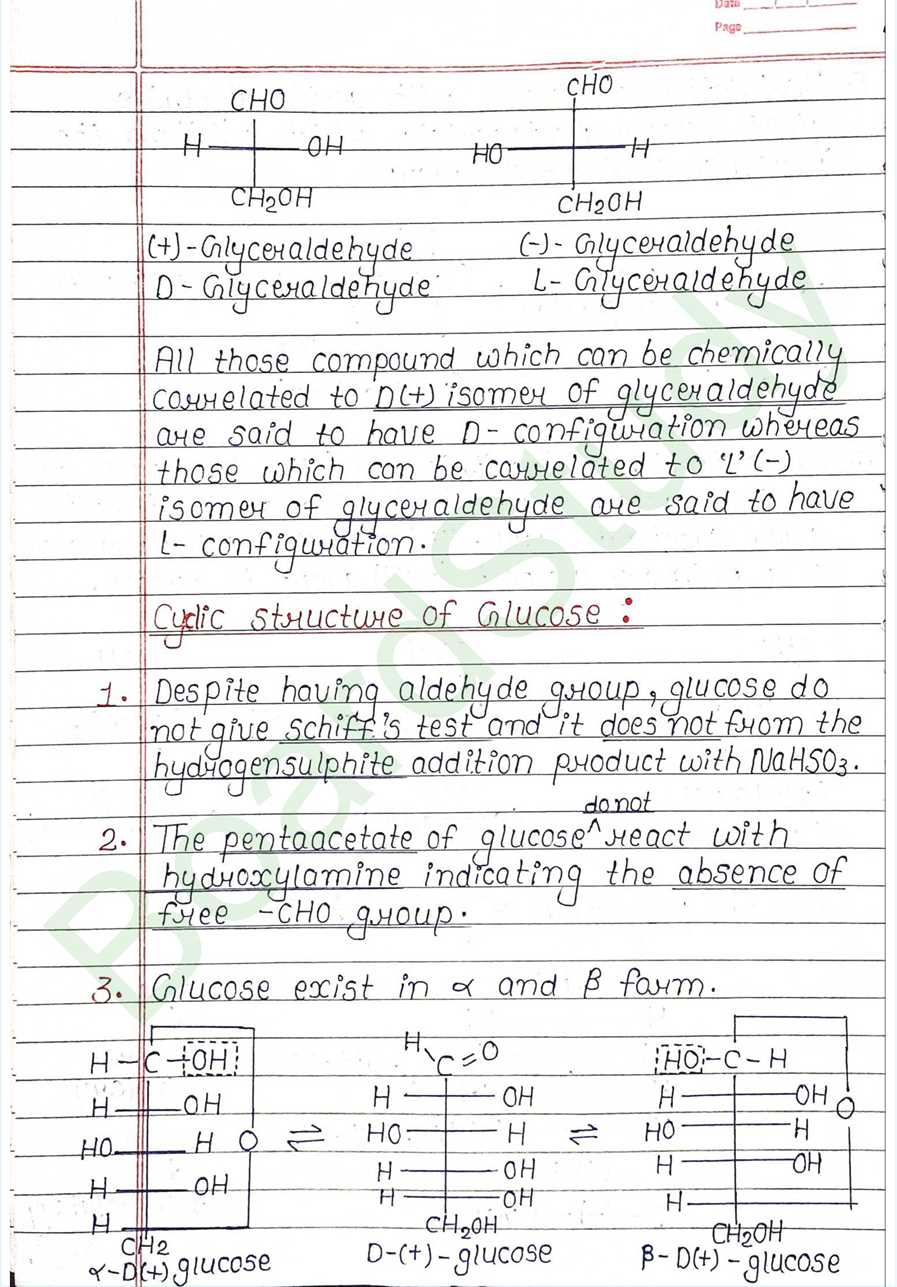 Date
Page
CHO CHO
H OH HO H
CH₂OH CH₂OH
(+)-Glyceraldehyde (-)- Glyceraldehyde
D - Glyceraldehyde L- Glyceraldehyde
All those compound which can be chemically
correlated to D(+) isomer of glyceraldehyde
are said to have D- configuration whereas
those which can be carrelated to 'L' (-)
isomer of glyceraldehyde are said to have
L- configuration.
Cyclic structure of Glucose :
1. Despite having aldehyde group, glucose do
not give schiff's test and it does not from the
hydrogensulphite addition product with NaHSO₃.
do not
2. The pentaacetate of glucose ^ react with
hydroxylamine indicating the absence of
free -CHO group.
3. Glucose exist in α and β farm.
H - C - OH H C = O HO - C - H
H OH H OH H OH O
HO H O ⇌ HO H ⇌ HO H
H OH H OH H OH
H H OH H
CH2 CH₂OH CH₂OH
α-D(+) glucose D-(+)-glucose β-D(+)-glucose
BoardStudy